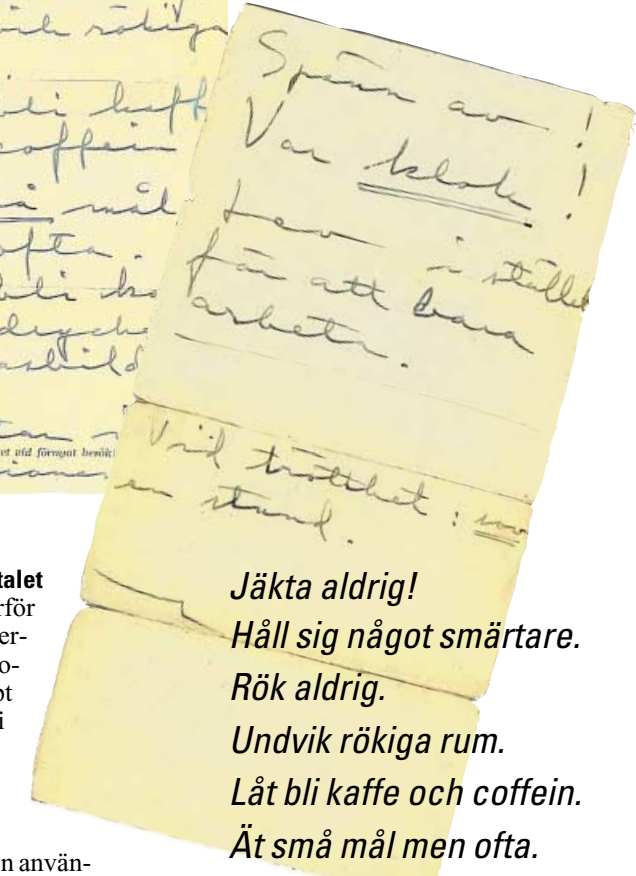 rökiga
coffein
små mål
ofta.
vid förnyat besök
Spänn av!
Var klok!
Lev i stället
för att bara
arbeta.
Vid trötthet: sov
en stund.
talet
rför
er-
o-
pt
i
n använ-
Jäkta aldrig!
Håll sig något smärtare.
Rök aldrig.
Undvik rökiga rum.
Låt bli kaffe och coffein.
Ät små mål men ofta.